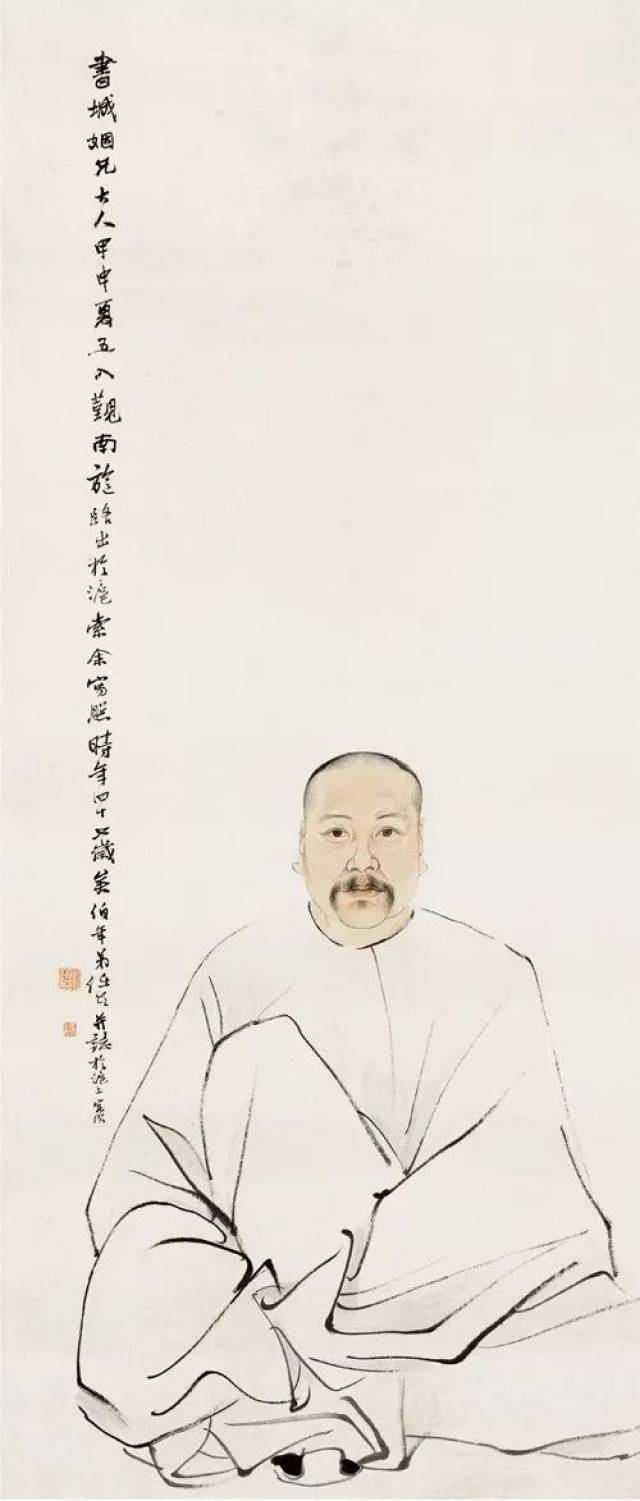 書城姻兄大人甲申夏五入覲南旋路出於滬索余寫照時年四十七歲伯年弟任頤并誌於滬上